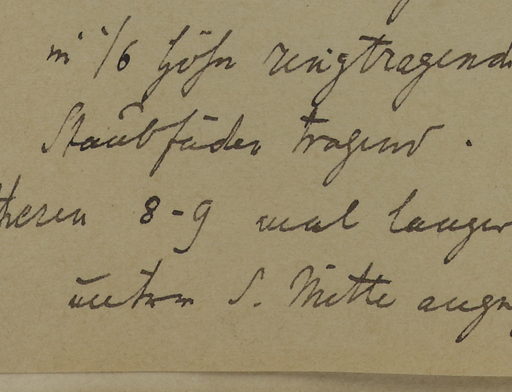 in 1/6 Höhe ringtragend
Staubfäden tragend.
theren 8-9 mal langer
unter d. Mitte ange